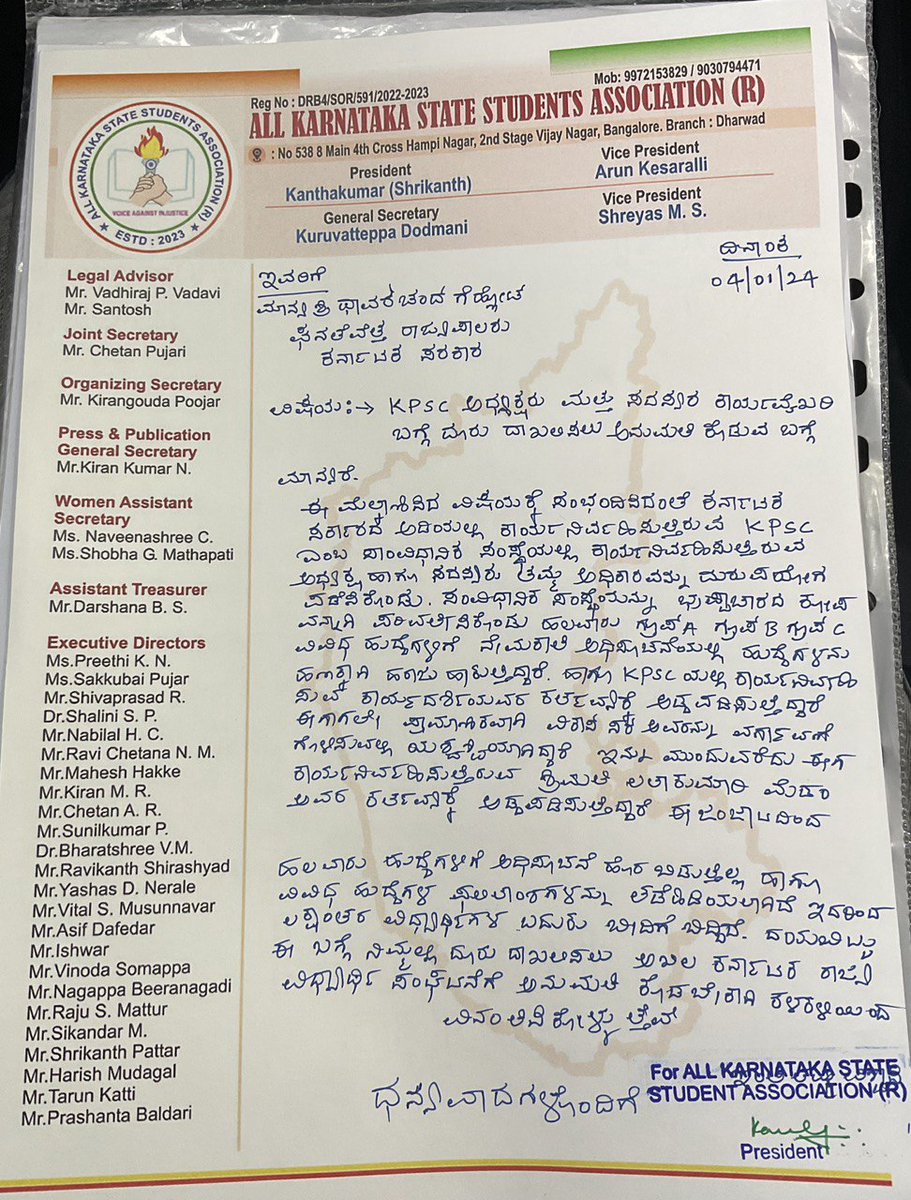 Reg No : DRB4/SOR/591/2022-2023
Mob: 9972153829 / 9030794471
ALL KARNATAKA STATE STUDENTS ASSOCIATION (R)
: No 538 8 Main 4th Cross Hampi Nagar, 2nd Stage Vijay Nagar, Bangalore. Branch : Dharwad
President
Kanthakumar (Shrikanth)
Vice President
Arun Kesaralli
General Secretary
Kuruvatteppa Dodmani
Vice President
Shreyas M. S.
ALL KARNATAKA STATE STUDENTS ASSOCIATION (R)
VOICE AGAINST INJUSTICE
ESTD : 2023
Legal Advisor
Mr. Vadhiraj P. Vadavi
Mr. Santosh
Joint Secretary
Mr. Chetan Pujari
Organizing Secretary
Mr. Kirangouda Poojar
Press & Publication
General Secretary
Mr.Kiran Kumar N.
Women Assistant
Secretary
Ms. Naveenashree C.
Ms.Shobha G. Mathapati
Assistant Treasurer
Mr.Darshana B. S.
Executive Directors
Ms.Preethi K. N.
Ms.Sakkubai Pujar
Mr.Shivaprasad R.
Dr.Shalini S. P.
Mr.Nabilal H. C.
Mr.Ravi Chetana N. M.
Mr.Mahesh Hakke
Mr.Kiran M. R.
Mr.Chetan A. R.
Mr.Sunilkumar P.
Dr.Bharatshree V.M.
Mr.Ravikanth Shirashyad
Mr.Yashas D. Nerale
Mr.Vital S. Musunnavar
Mr.Asif Dafedar
Mr.Ishwar
Mr.Vinoda Somappa
Mr.Nagappa Beeranagadi
Mr.Raju S. Mattur
Mr.Sikandar M.
Mr.Shrikanth Pattar
Mr.Harish Mudagal
Mr.Tarun Katti
Mr.Prashanta Baldari
ದಿನಾಂಕ
04/01/24
ಇವರಿಗೆ
ಮಾನ್ಯ ಶ್ರೀ ಥಾವರಚಂದ ಗೆಹ್ಲೋಟ
ಘನತೆವೆತ್ತ ರಾಜ್ಯಪಾಲರು
ಕರ್ನಾಟಕ ಸರಕಾರ
ವಿಷಯ:→ KPSC ಅಧ್ಯಕ್ಷರು ಮತ್ತು ಸದಸ್ಯರ ಕಾರ್ಯವೈಖರಿ
ಬಗ್ಗೆ ದೂರು ದಾಖಲಿಸಲು ಅನುಮತಿ ಕೊಡುವ ಬಗ್ಗೆ
ಮಾನ್ಯರೆ.
ಈ ಮೆಲ್ಕಾಣಿಸಿದ ವಿಷಯಕ್ಕೆ ಸಂಭಂದಿಸಿದಂತೆ ಕರ್ನಾಟಕ
ಸರ್ಕಾರದ ಅಡಿಯಲ್ಲಿ ಕಾರ್ಯನಿರ್ವಹಿಸುತ್ತಿರುವ KPSC
ಎಂಬ ಸಾಂವಿಧಾನಿಕ ಸಂಸ್ಥೆಯಲ್ಲಿ ಕಾರ್ಯನಿರ್ವಹಿಸುತ್ತಿರುವ
ಅಧ್ಯಕ್ಷ ಹಾಗೂ ಸದಸ್ಯರು ತಮ್ಮ ಅಧಿಕಾರವನ್ನು ದುರುಪಯೋಗ
ಪಡೆಸಿಕೊಂಡು. ಸಂವಿಧಾನಿಕ ಸಂಸ್ಥೆಯನ್ನು ಭ್ರಷ್ಟಾಚಾರದ ಕೂಪ
ವನ್ನಾಗಿ ಪರಿವರ್ತಿಸಿಕೊಂಡು ಹಲವಾರು ಗ್ರೂಪ್ A ಗ್ರೂಪ್ B ಗ್ರೂಪ್ C
ವಿವಿಧ ಹುದ್ದೆಗಳಿಗೆ ನೇಮಕಾತಿ ಅಧಿಸೂಚನೆಯಲ್ಲಿ ಹುದ್ದೆಗಳನು
ಹಣಕ್ಕಾಗಿ ಹರಾಜು ಹಾಕುತ್ತಿದ್ದಾರೆ. ಹಾಗೂ KPSC ಯಲ್ಲಿ ಕಾರ್ಯನಿರ್ವಹಿ
ಸುವ ಕಾರ್ಯದರ್ಶಿಯವರ ಕರ್ತವ್ಯಕ್ಕೆ ಅಡ್ಡಪಡಿಸುತ್ತಿದ್ದಾರೆ
ಈಗಾಗಲೇ ಪ್ರಾಮಾಣಿಕವಾಗಿ ಅವರನ್ನು ವರ್ಗಾವಣೆ
ಗೊಳಿಸುವಲ್ಲಿ ಯಶಸ್ವಿಯಾಗಿದ್ದಾರೆ ಇನ್ನು ಮುಂದುವರೆದು ಈಗ
ಕಾರ್ಯನಿರ್ವಹಿಸುತ್ತಿರುವ ಶ್ರೀಮತಿ ಲತಾಕುಮಾರಿ ಮೆಡಂ
ಅವರ ಕರ್ತವ್ಯಕ್ಕೆ ಅಡ್ಡಪಡಿಸುತ್ತಿದ್ದಾರೆ ಈ ಜಂಜಾಟದಿಂದ
ಹಲವಾರು ಹುದ್ದೆಗಳಿಗೆ ಅಧಿಸೂಚನೆ ಹೊರ ಬಿಡುತ್ತಿಲ್ಲ ಹಾಗೂ
ವಿವಿಧ ಹುದ್ದೆಗಳ ಫಲಿತಾಂಶಗಳನ್ನು ತಡೆಹಿಡಿಯಲಾಗಿದೆ ಇದರಿಂದ
ಲಕ್ಷಾಂತರ ವಿದ್ಯಾರ್ಥಿಗಳ ಬದುಕು ಬೀದಿಗೆ ಬಿದ್ದಿದೆ. ದಯವಿಟ್ಟು
ಈ ಬಗ್ಗೆ ನಿಮ್ಮಲ್ಲಿ ದೂರು ದಾಖಲಿಸಲು ಅಖಿಲ ಕರ್ನಾಟಕ ರಾಜ್ಯ
ವಿಧ್ಯಾರ್ಥಿ ಸಂಘಟನೆಗೆ ಅನುಮತಿ ಕೊಡಬೇಕಾಗಿ ಕಳಕಳಿಯಿಂದ
ವಿನಂತಿಸಿಕೊಳ್ಳುತ್ತೇವೆ
ಧನ್ಯವಾದಗಳೊಂದಿಗೆ
For ALL KARNATAKA STATE
STUDENT ASSOCIATION (R)
President